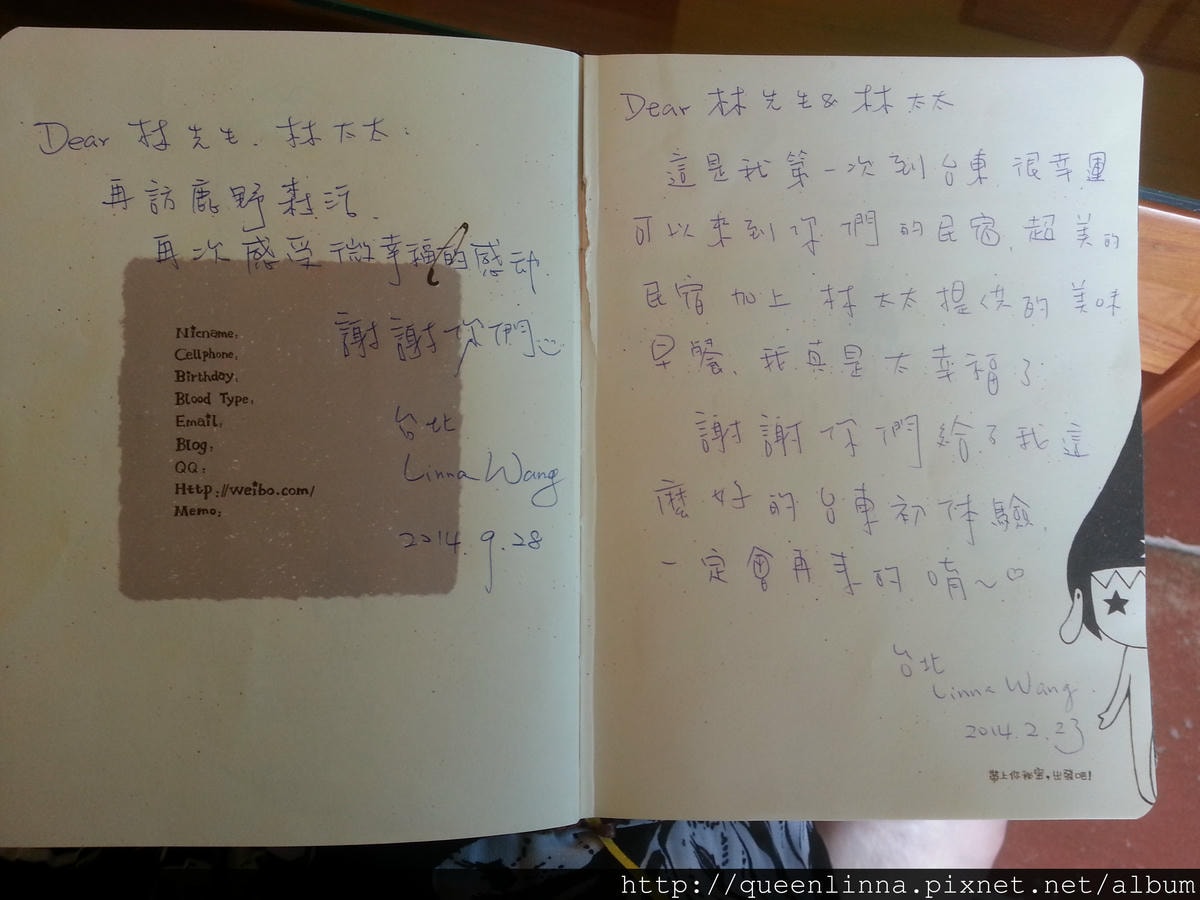 Dear 林先生、林太太：
再訪鹿野森活、
再次感受微幸福的感动、
謝謝你們
台北
Linna Wang
2014.9.28
Nicname:
Cellphone:
Birthday:
Blood Type:
Email:
Blog:
QQ:
Http://weibo.com/
Memo:
Dear 林先生&林太太
這是我第一次到台東、很幸運
可以來到你們的民宿、超美的
民宿加上林太太提供的美味
早餐、我真是太幸福了
謝謝你們給了我這
麼好的台東初体驗、
一定會再來的唷~♡
台北
Linna Wang.
2014.2.23
帶上你祕密，出發吧!
http://queenlinna.pixnet.net/album